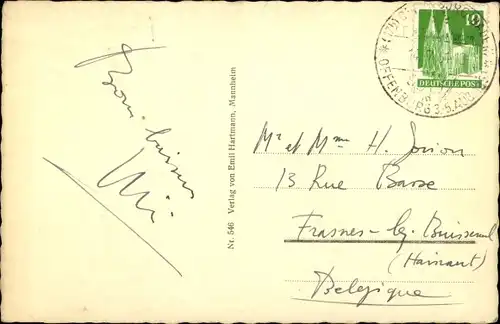 Bons baisers
Nr. 546 Verlag von Emil Hartmann, Mannheim
10
DEUTSCHE POST
OFFENBURG 3.-5. AUG.
Mr et Mme H. Jorion
13 Rue Basse
Frasnes-lez-Buissenal
(Hainaut)
Belgique